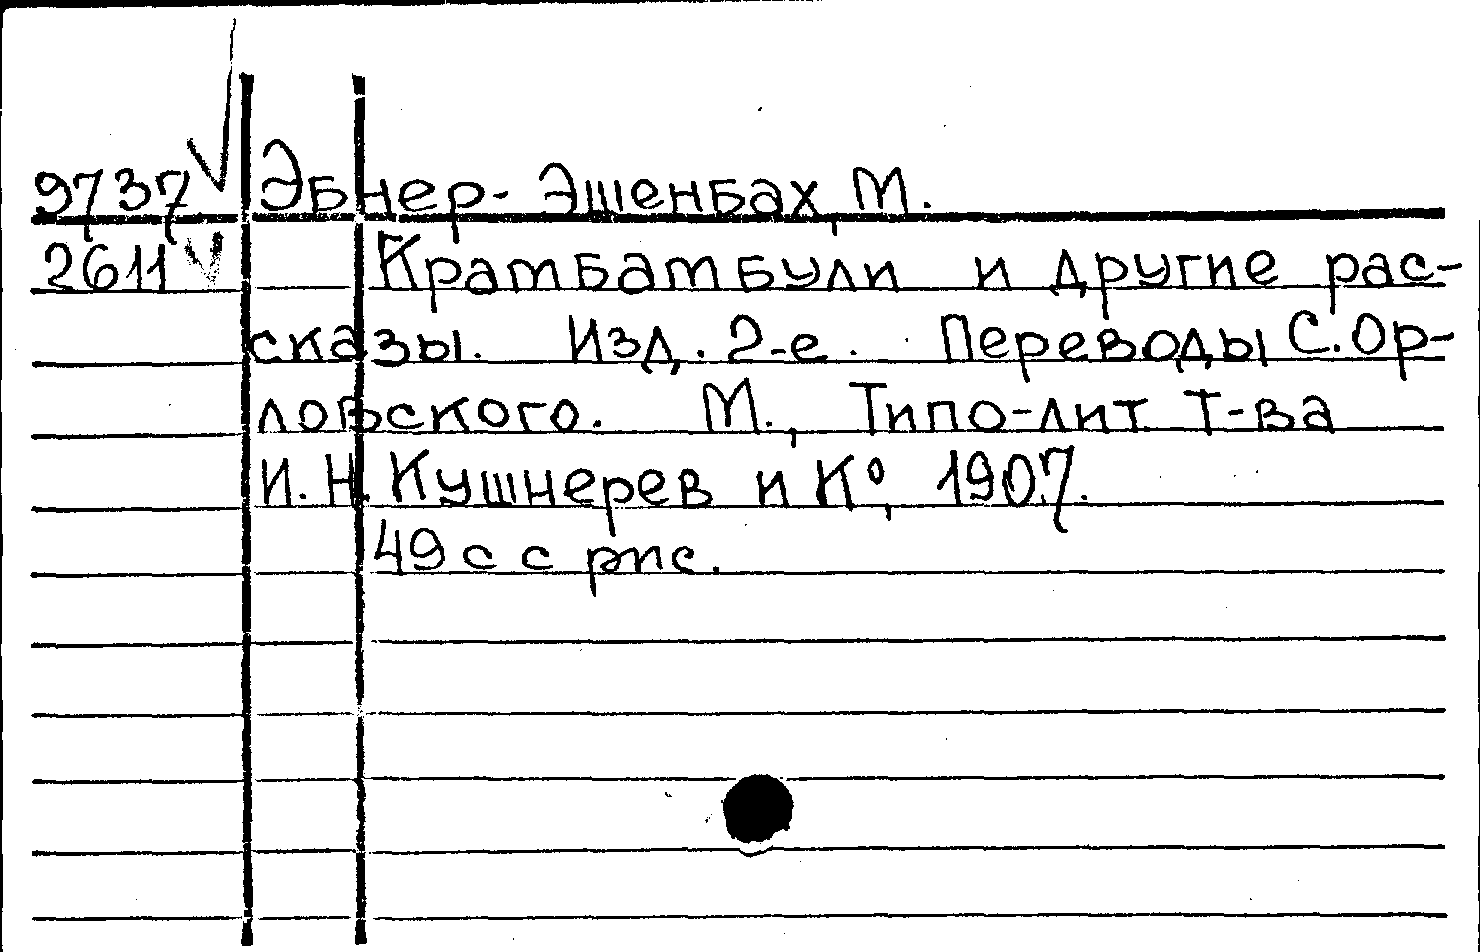 9737 Эбнер-Эшенбах, М.
2611 Крамбамбули и другие рас-
сказы. Изд. 2-е. Переводы С. Ор-
ловского. М., Типо-лит Т-ва
И. Н. Кушнерев и К°, 1907.
49 с с рис.